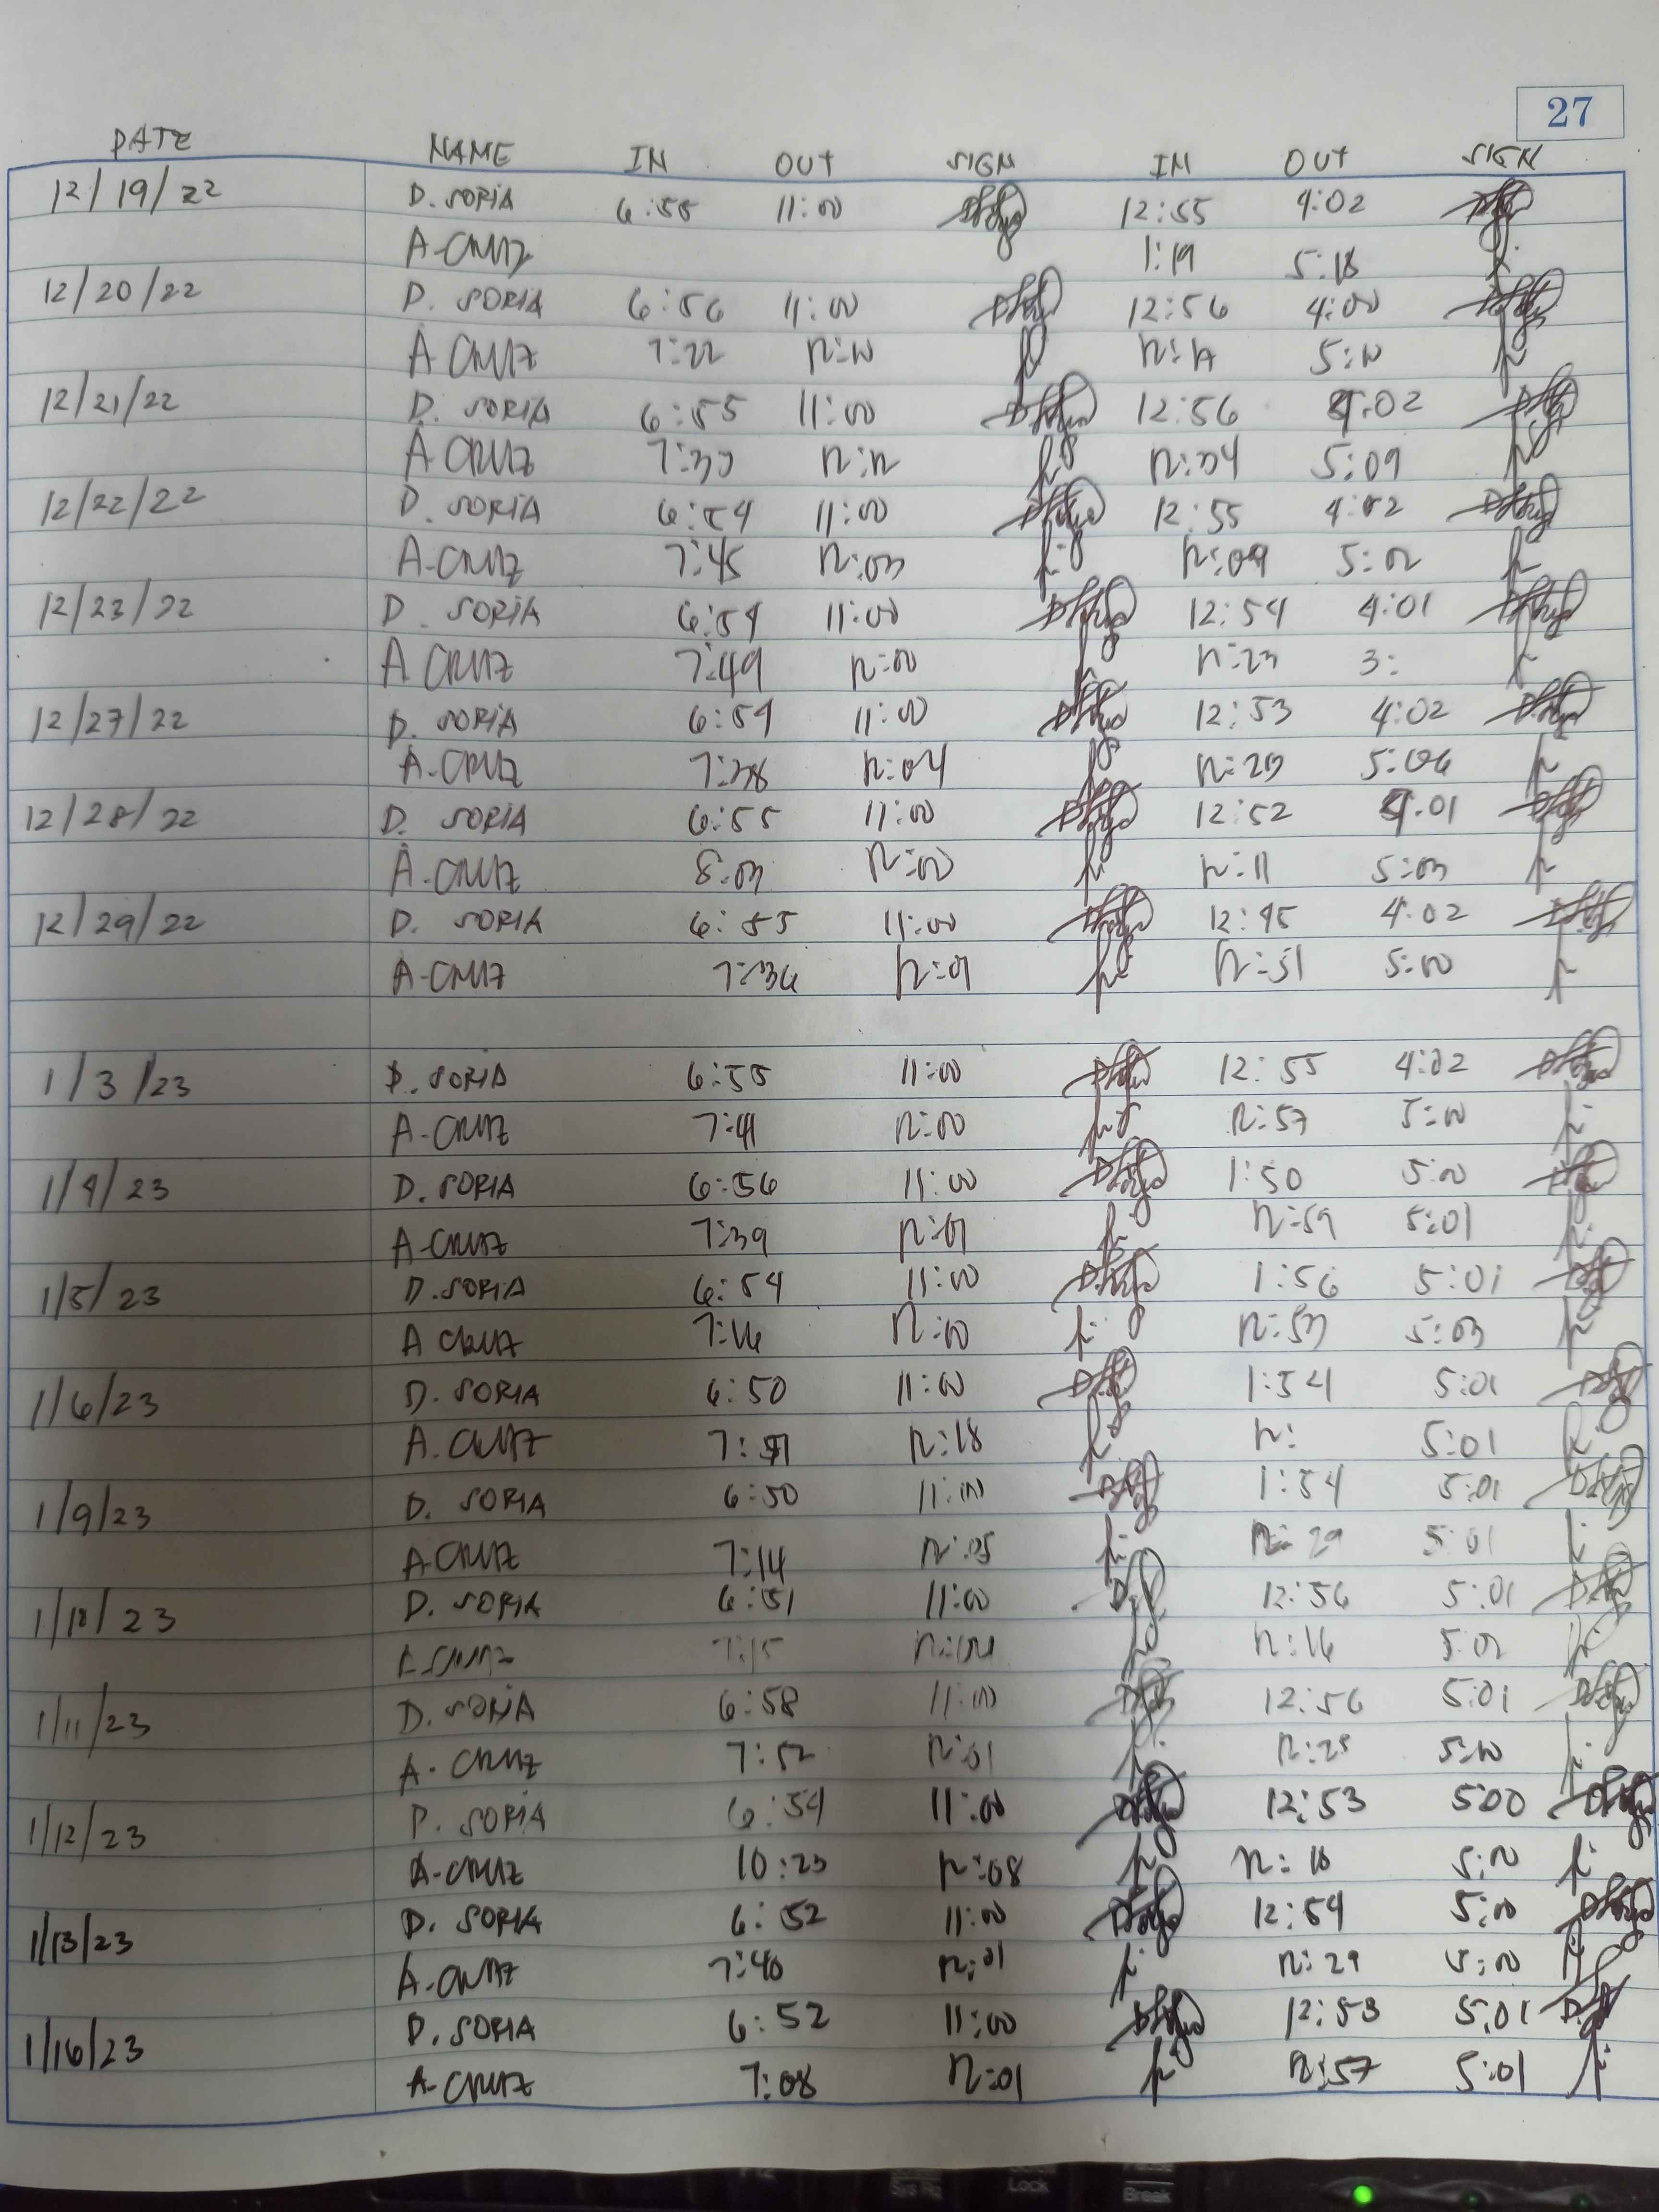 27
DATE NAME IN OUT SIGN IN OUT SIGN
12/19/22 D. SORIA 6:55 11:00 12:55 4:02
A-CRUZ 1:19 5:18
12/20/22 D. SORIA 6:56 11:00 12:56 4:00
A CRUZ 7:22 12:10 5:10
12/21/22 D. SORIA 6:55 11:00 12:56 4:02
A CRUZ 12:12 12:34 5:09
12/22/22 D. SORIA 6:54 11:00 12:55 4:02
A-CRUZ 7:45 12:03 12:09 5:02
12/23/22 D. SORIA 6:54 11:00 12:54 4:01
A CRUZ 7:49 12:00 12:23 3:
12/27/22 D. SORIA 6:54 11:00 12:53 4:02
A-CRUZ 7:38 12:04 12:23 5:06
12/28/22 D. SORIA 6:55 11:00 12:52 4:01
A-CRUZ 8:03 12:00 12:11 5:03
12/29/22 D. SORIA 6:55 11:00 12:45 4:02
A-CRUZ 7:36 12:01 12:51 5:00
1/3/23 D. SORIA 6:55 11:00 12:55 4:02
A-CRUZ 7:41 12:00 12:57 5:00
1/4/23 D. SORIA 6:56 11:00 1:50 5:00
A-CRUZ 7:39 12:01 12:59 5:01
1/5/23 D. SORIA 6:54 11:00 1:56 5:01
A CRUZ 7:16 12:00 12:53 5:03
1/6/23 D. SORIA 6:50 11:00 1:54 5:01
A. CRUZ 12:18 12: 5:01
1/9/23 D. SORIA 6:50 11:00 1:54 5:01
A CRUZ 7:14 12:05 12:29 5:01
1/10/23 D. SORIA 6:51 11:00 12:56 5:01
A CRUZ 7:15 12:16 5:02
1/11/23 D. SORIA 6:58 11:00 12:56 5:01
A. CRUZ 7:52 12:01 5:00
1/12/23 D. SORIA 6:54 11:00 12:53 5:00
A-CRUZ 10:23 12:08 12:10 5:00
1/13/23 D. SORIA 6:52 11:00 12:54 5:00
A-CRUZ 7:40 12:01 12:29 5:00
1/16/23 D. SORIA 6:52 11:00 12:53 5:01
A-CRUZ 7:08 12:01 12:57 5:01
Lock
Break